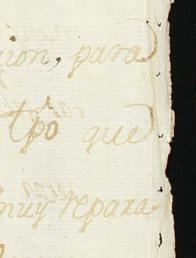 cion, para
tpo que
muy repara